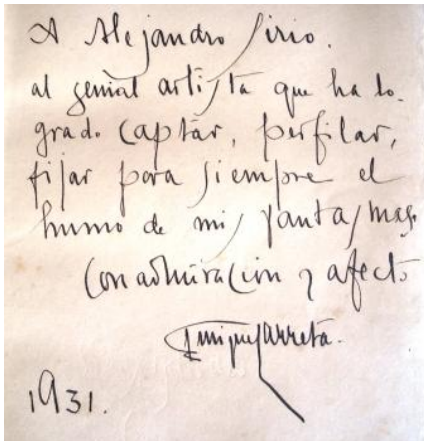 A Alejandro Sirio.
al genial artista que ha lo-
grado captar, perfilar,
fijar para siempre el
humo de mis fantasmas.
Con admiración y afecto
Enrique Larreta.
1931.